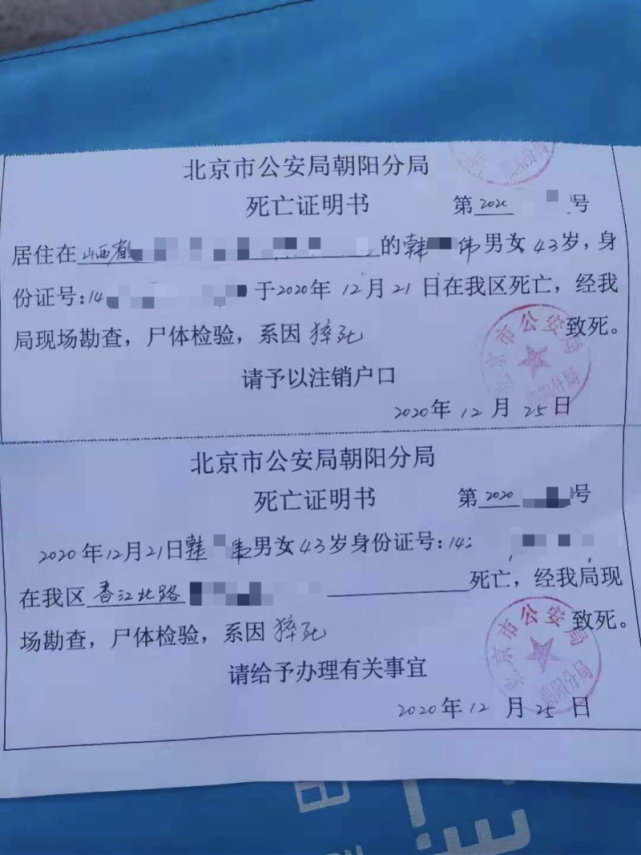 北京市公安局朝阳分局
死亡证明书 第2020 号
居住在山西省 的韩 伟男女43岁,身
份证号:14 于2020年12月21日在我区死亡,经我
局现场勘查,尸体检验,系因猝死 致死。
请予以注销户口
北京市公安局
2020年12月25日
北京市公安局朝阳分局
死亡证明书 第2020 号
2020年12月21日韩 伟男女43岁身份证号:14
在我区香江北路 死亡,经我局现
场勘查,尸体检验,系因猝死 致死。
请给予办理有关事宜
北京市公安局
2020年12月25日